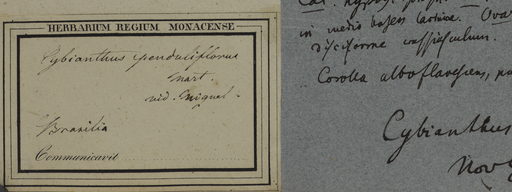 HERBARIUM REGIUM MONACENSE
Cybianthus penduliflorus
Mart.
vid. Miquel.
Brasilia
Communicavit
in medio basem
disciforme
Corolla alboflavescens,
Cybianthus
Nov